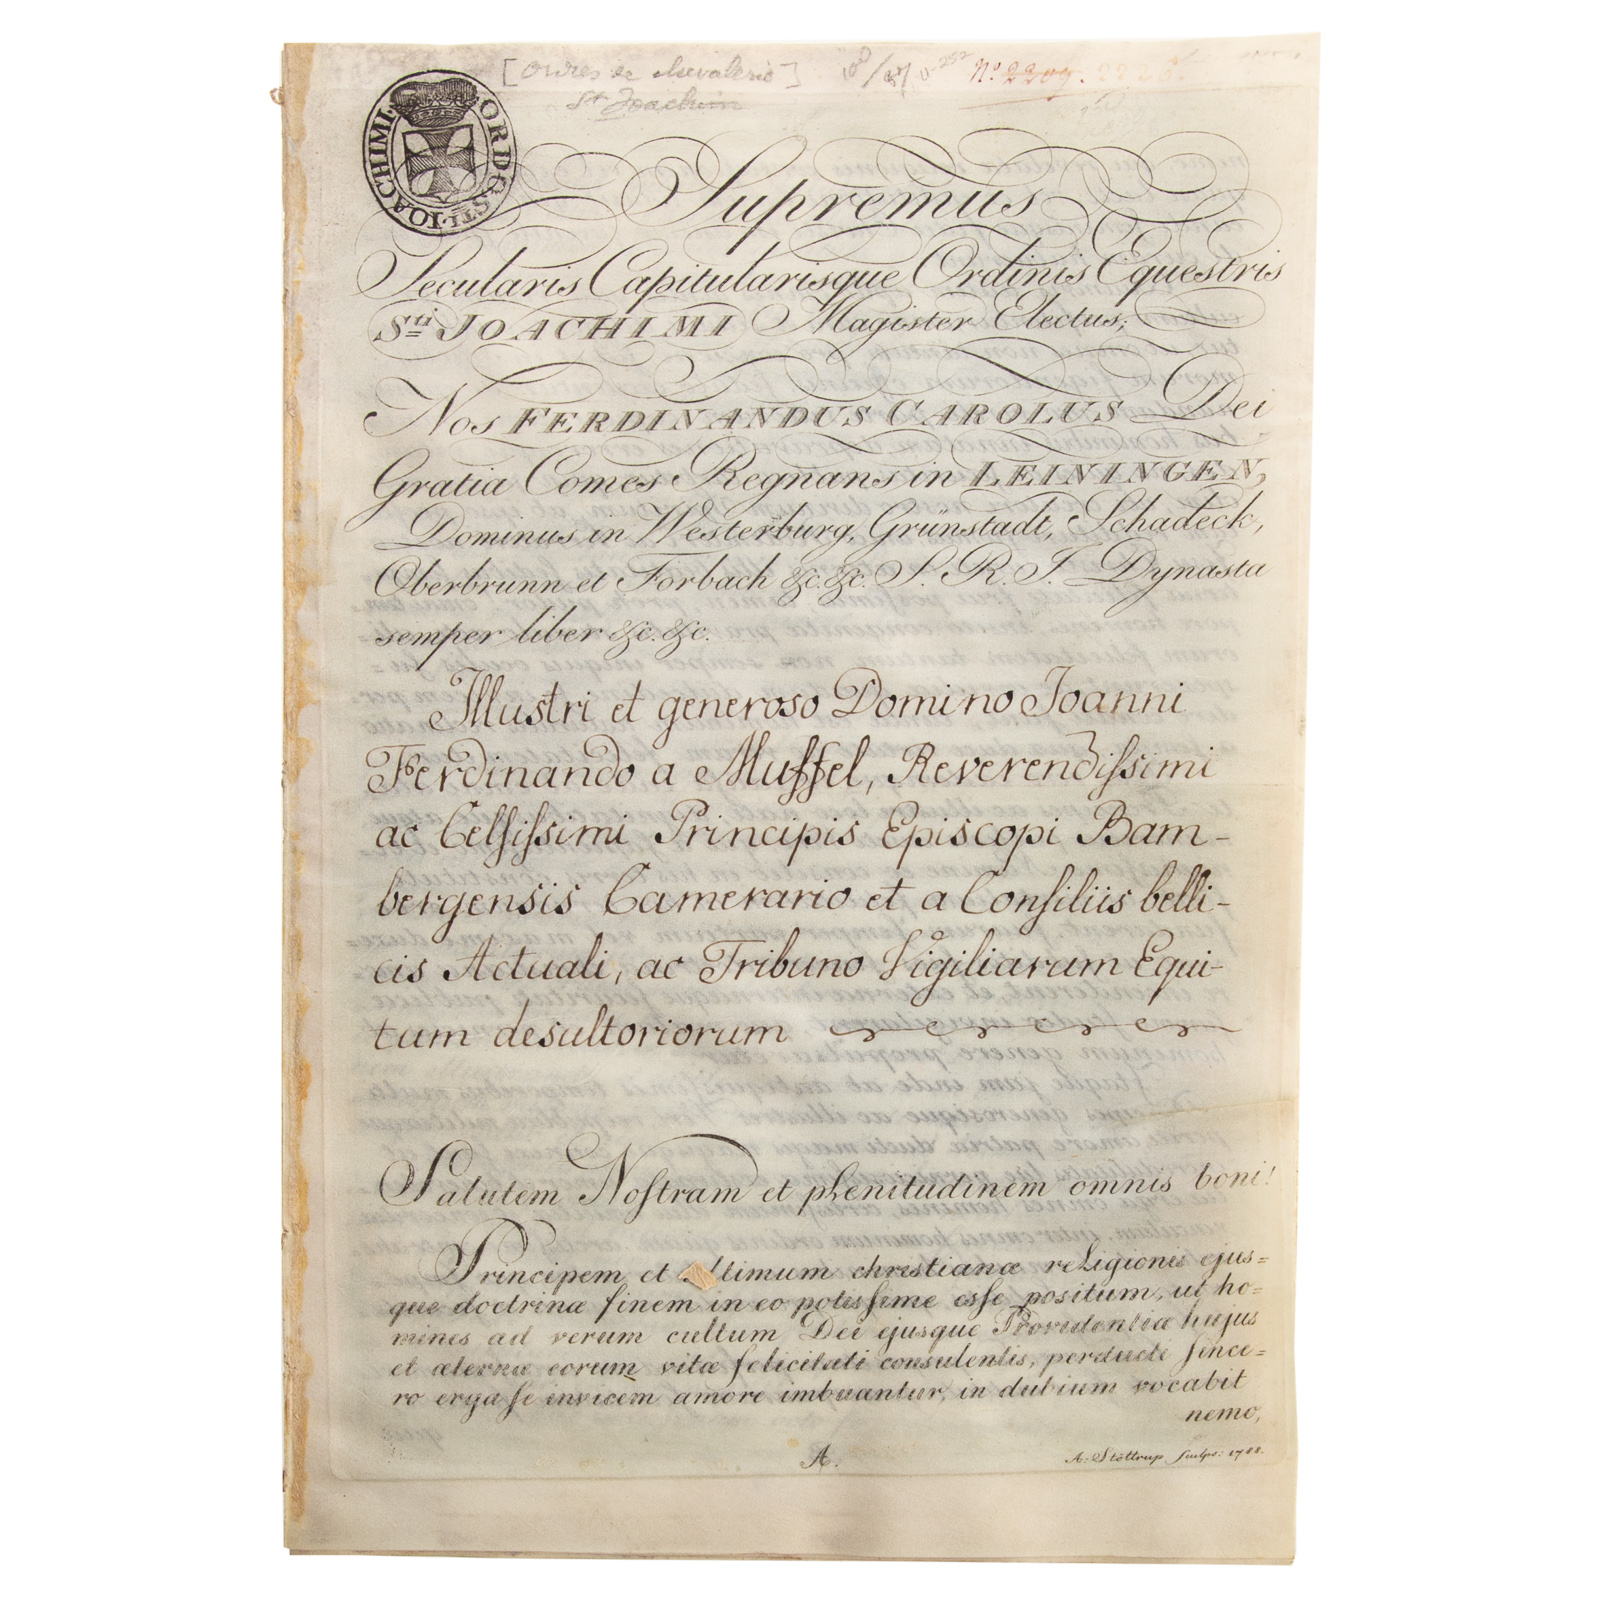 [Ordres de chevalerie]
St Joachim
No. 2209.
ORDO. STI. JOACHIMI.
Supremus
Secularis Capitularisque Ordinis Equestris
Sti JOACHIMI Magister Electus,
Nos FERDINANDUS CAROLUS Dei
Gratia Comes Regnans in LEININGEN,
Dominus in Westerburg, Grünstadt, Schadeck,
Oberbrunn et Forbach &c. &c. S. R. I. Dynasta
semper liber &c. &c.
Illustri et generoso Domino Joanni
Ferdinando a Muffel, Reverendiſsimi
ac Celſiſsimi Principis Episcopi Bam-
bergensis Camerario et a Conſiliis belli-
cis Actuali, ac Tribuno Vigiliarum Equi-
tum desultoriorum
Salutem Noſtram et plenitudinem omnis boni!
Principem et ultimum christianæ religionis ejus=
que doctrinæ finem in eo potisſime esſe positum, ut ho=
mines ad verum cultum Dei ejusque Providentiæ hujus
et æternæ eorum vitæ felicitati consulentis, perducti ſince=
ro erga ſe invicem amore imbuantur, in dubium vocabit
nemo,
A.
A. Stöttrup ſculps: 1788.